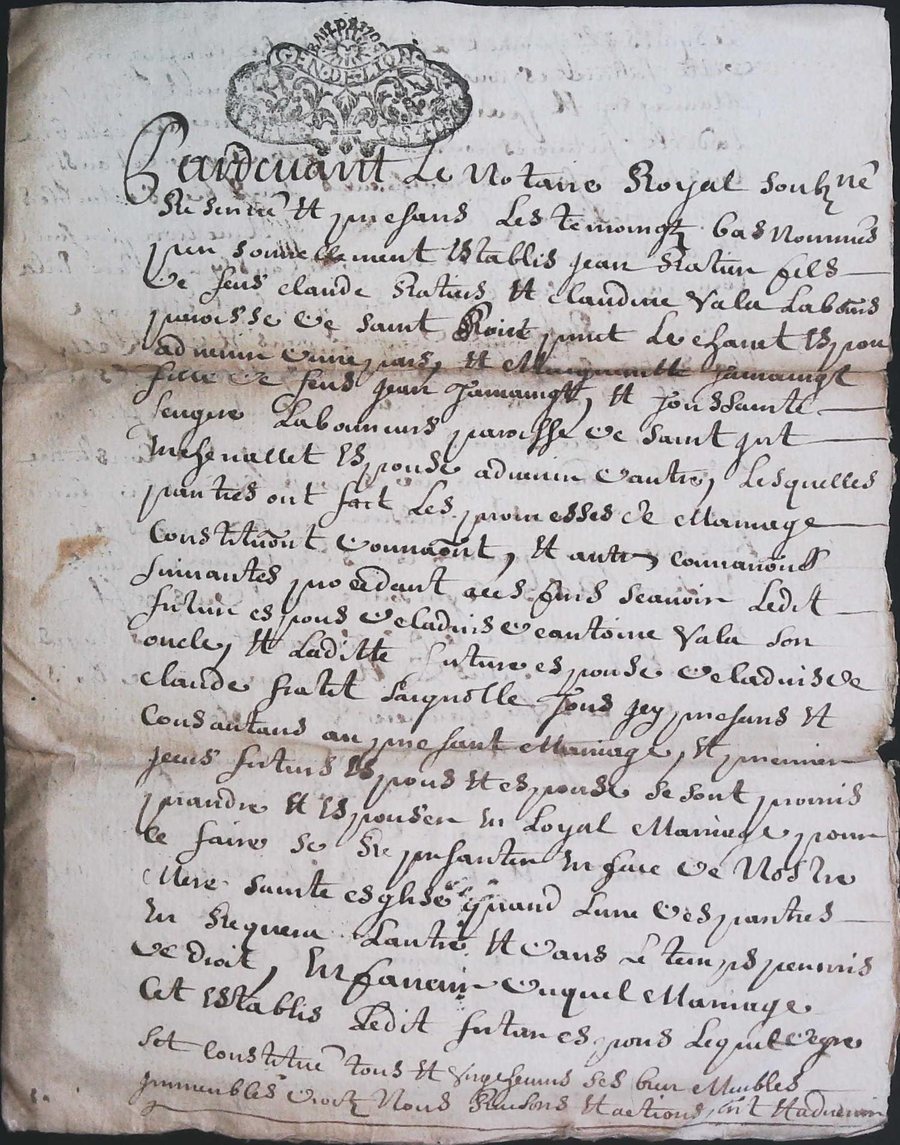 GEN·DE·LION
Pardevant Le Notaire Royal soubzné
Resenué et presans Les temoingz bas Nommés
personnellement Establis jean Ratier fils
De feus claude Ratiers et claudine Vala Labours
paroisse de saint Roint punt Le chanet Espou
advenir d'une part, et Margueritte Jamaingt
fille de feus jean Jamaingt, et Joussainte
seugne Laboureurs paroisse de saint just
Espouse advenir d'autre, Lesquelles
parties ont fait Les promesses de Mariage
Constitu͠ont donnaõnt, et autres convantions
suivantes procedant aces fins scavoir Ledit
futur espous de ladvis de antoine Vala son
oncle, et Laditte future espouse de ladvis de
claude fratit Laquelle tous jcy presans et
Consantans au presant Mariage, et premier
jceus futurs Espous et espouse se sont promis
prandre et Espouser En Loyal Mariage pour
ce faire se presanter En face de Nostre
Mere sainte esglise quand Lune des parties
En Requera Lautre et dans Le temps permis
de droit, En faveur duquel Mariage
Cet Establis Ledit futur espous Lequel de gre
set Constitué tous et ses bien Meubles
jmmeubles droitz Noms Raisons et actions et advenir